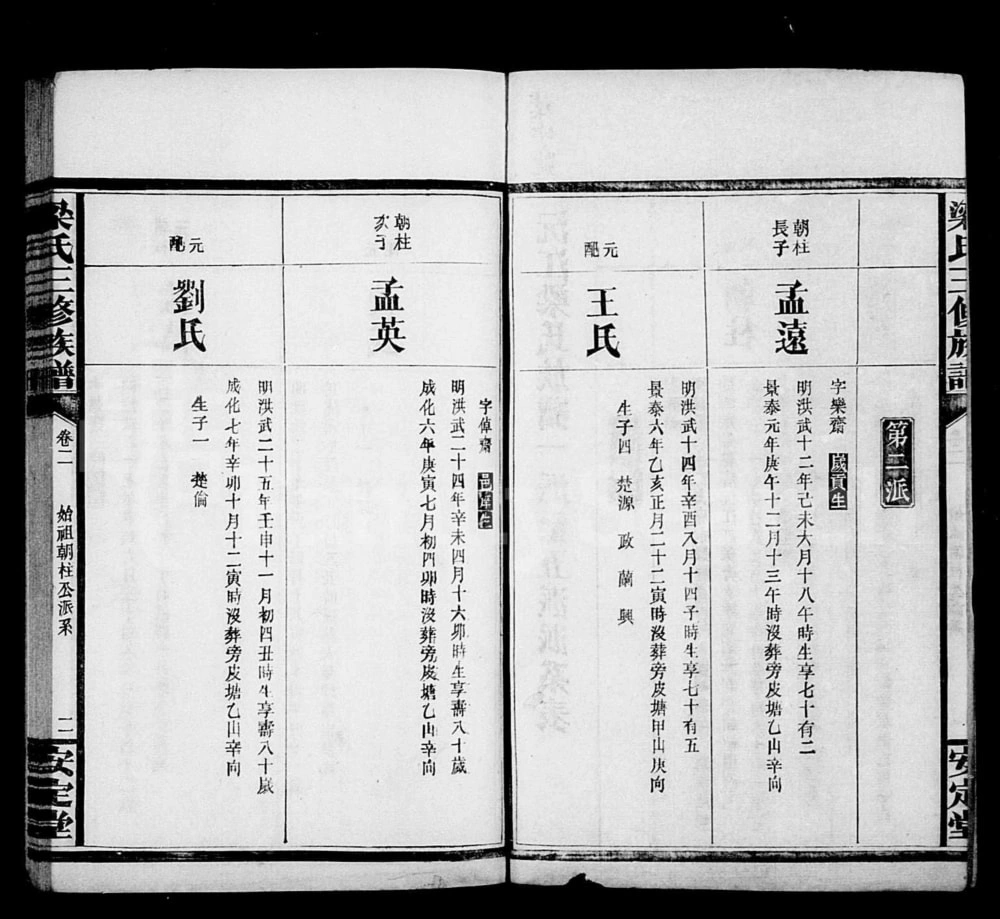 梁氏三修族譜
安定堂
第二派
朝柱
長子
孟遠
字樂齋 歲貢生
明洪武十二年己未六月十八午時生享七十有二
景泰元年庚午十二月十三午時沒葬旁皮塘乙山辛向
元
配
王氏
明洪武十四年辛酉八月十四子時生享七十有五
景泰六年乙亥正月二十二寅時沒葬旁皮塘甲山庚向
生子四 楚源 政 蘭 興
朝柱
次子
孟英
字倬齋
明洪武二十四年辛未四月十六卯時生享壽八十歲
成化六年庚寅七月初四卯時沒葬旁皮塘乙山辛向
元
配
劉氏
明洪武二十五年壬申十一月初四丑時生享壽八十歲
成化七年辛卯十月十二寅時沒葬旁皮塘乙山辛向
生子一 楚倫
梁氏三修族譜
卷二
始祖朝柱公派系
二
安定堂